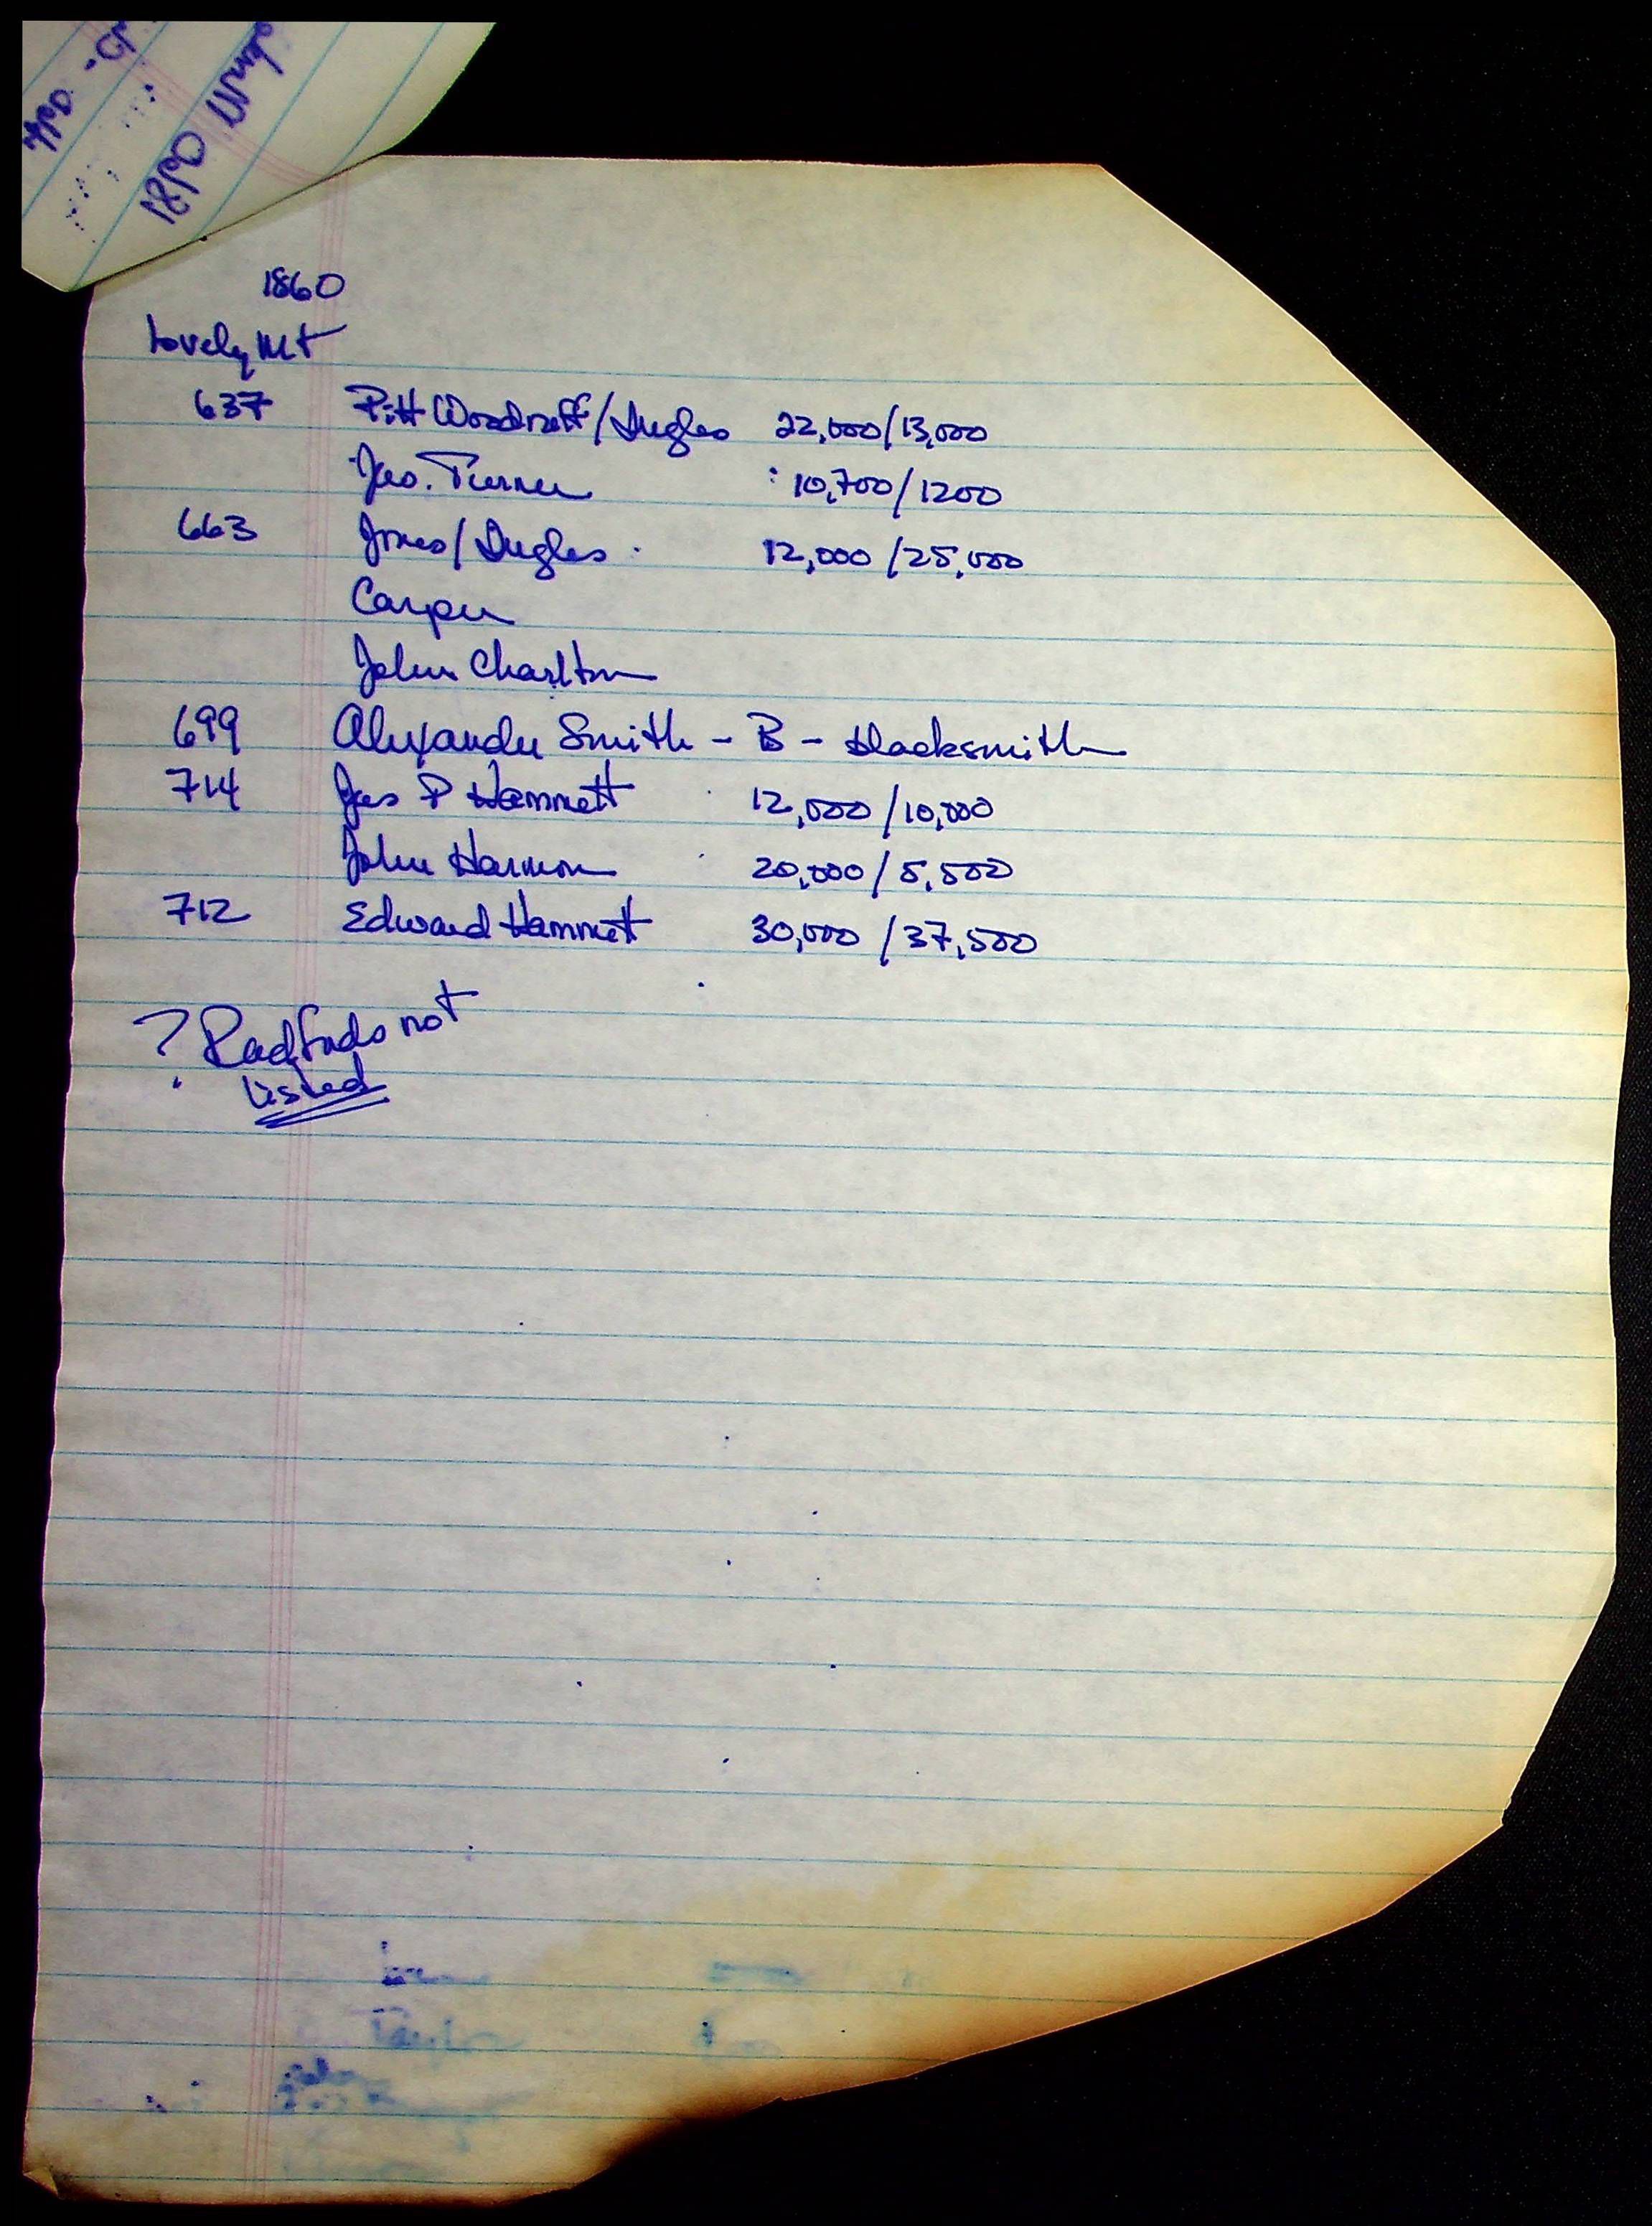 1860
Lovely Mt
637 Pitt Woodruff/Ingles 22,000/13,000
Geo. Turner : 10,700/1200
663 Jones/Ingles . 12,000/25,000
Carper
John Charlton
699 Alexander Smith - B - blacksmith
714 Jas P Hammett . 12,000/10,000
John Harmon . 20,000/5,500
712 Edward Hammet 30,000/37,500
? Radfords not
listed